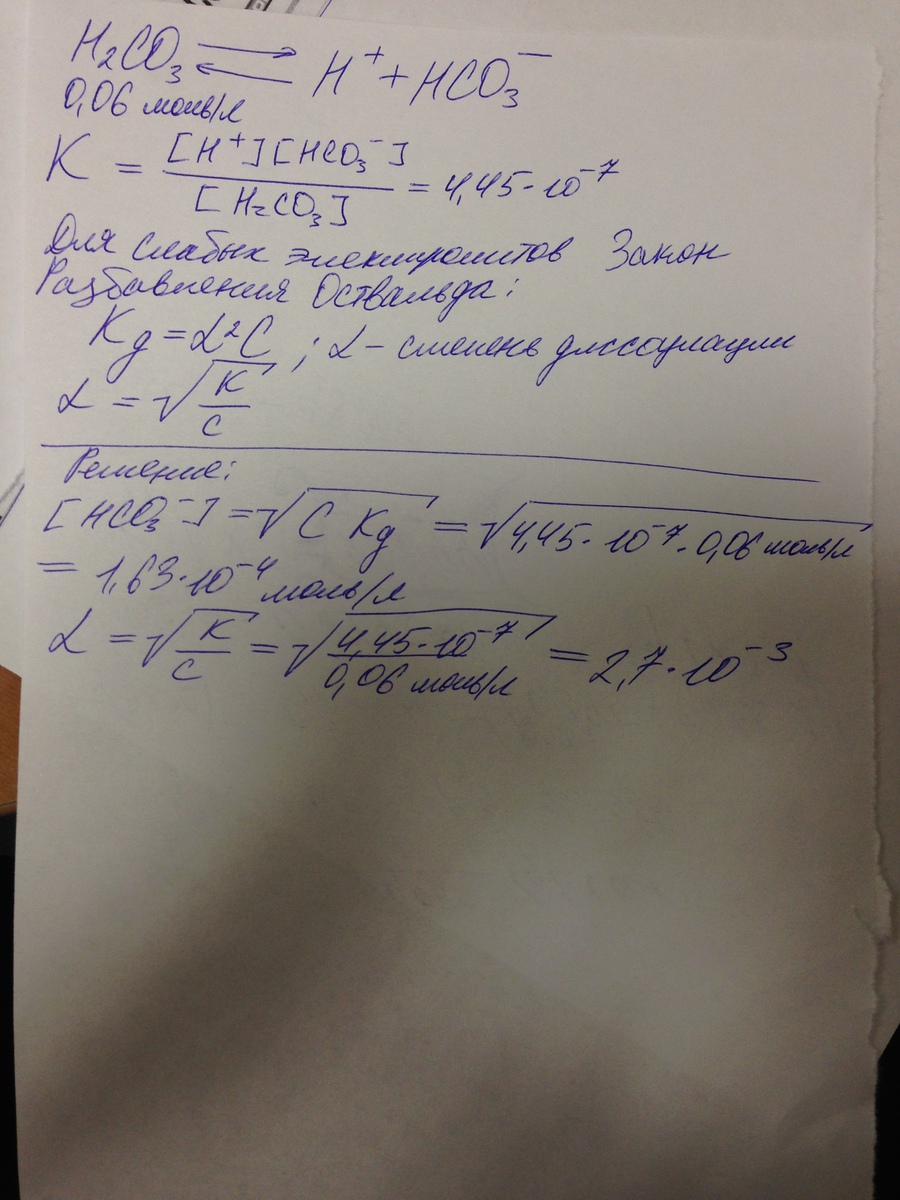 H₂CO₃ ⇄ H⁺ + HCO₃⁻
0,06 моль/л
K = [H⁺][HCO₃⁻] / [H₂CO₃] = 4,45·10⁻⁷
Для слабых электролитов Закон
Разбавления Оствальда:
Kд = α²C ; α – степень диссоциации
α = √(K/C)
Решение:
[HCO₃⁻] = √(C Kд) = √(4,45·10⁻⁷·0,06 моль/л)
= 1,63·10⁻⁴ моль/л
α = √(K/C) = √(4,45·10⁻⁷ / 0,06 моль/л) = 2,7·10⁻³